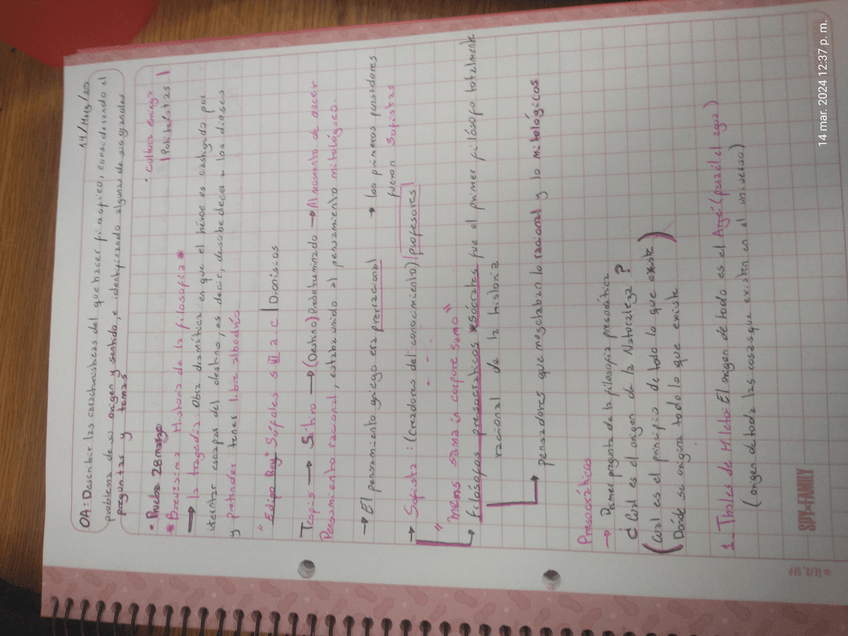 14/Marzo/20
OA: Describir las características del quehacer filosófico, considerando el
problema de su origen y sentido, e identificando algunas de sus grandes
preguntas y temas
• Prueba 28 marzo
• Cultura Griega
(Politeístas)
* Brevísima Historia de la filosofía *
→ la tragedia: Obra dramática en que el héroe es castigado por
intentar escapar del destino, es decir, desobedecer a los dioses
y pretender tener libre albedrío
"Edipo Rey" Sófoles s VI a.c | Dionisios
Tespis → Sátiro → (Destino) Predeterminado → Al momento de nacer
Pensamiento racional, estaba unido al pensamiento mitológico.
→ El pensamiento griego era prerracional → los primeros pensadores
fueron Sofistas
→ Sofista: (Creadores del conocimiento) (profesores)
"mens sana in corpore sano"
→ Filósofos presocráticos *Sócrates fue el primer filósofo totalmente
racional de la historia
→ pensadores que mezclaban lo racional y lo mitológicos
Presocráticos
→ pregunta de la filosofía presocrática
¿Cuál es el origen de la Naturaleza?
(Cuál es el principio de todo lo que existe)
Dónde se origina todo lo que existe
1. Thales de Mileto: El origen de todo es el Arjé (para él el agua)
(origen de toda las cosas que existen en el universo)
SPY×FAMILY
14 mar. 2024 12:37 p. m.